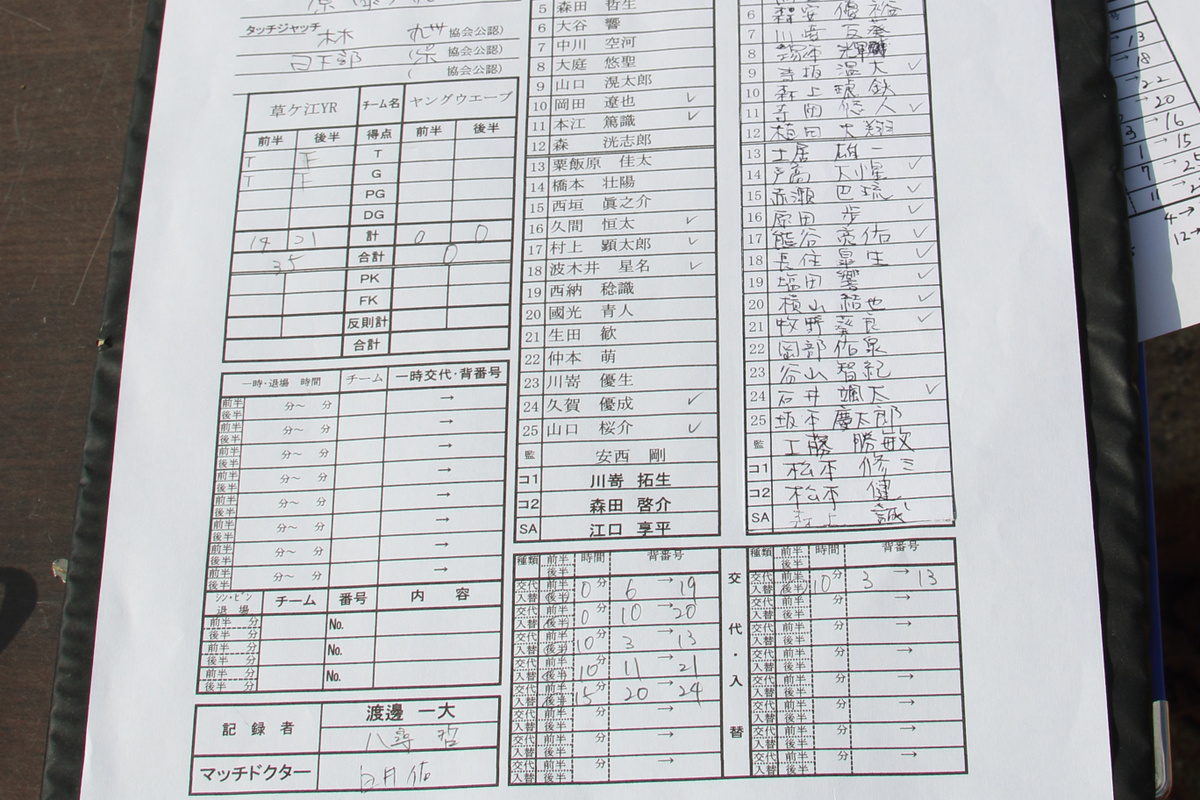 タッチジャッチ 林 協会公認)
日下部 協会公認)
( 協会公認)
草ケ江YR チーム名 ヤングウエーブ
前半 後半 得点 前半 後半
T T T
T T G
PG
DG
14 21 計 0 0
35 合計 0
PK
FK
反則計
合計
一時・退場 時間 チーム 一時交代・背番号
前半 後半 分～ 分 →
前半 後半 分～ 分 →
前半 後半 分～ 分 →
前半 後半 分～ 分 →
前半 後半 分～ 分 →
前半 後半 分～ 分 →
前半 後半 分～ 分 →
前半 後半 分～ 分 →
シン・ビン 退場 チーム 番号 内 容
前半 分 後半 分 No.
前半 分 後半 分 No.
前半 分 後半 分 No.
記 録 者 渡邊 一大
八尋 哲
マッチドクター 白井 佑
5 森田 哲生
6 大谷 響
7 中川 空河
8 大庭 悠聖
9 山口 滉太郎
10 岡田 遼也 ✓
11 本江 篤識 ✓
12 森 洸志郎
13 粟飯原 佳太
14 橋本 壮陽
15 西垣 眞之介
16 久間 恒太 ✓
17 村上 顕太郎 ✓
18 波木井 星名 ✓
19 西納 稔識
20 國光 青人
21 生田 歓
22 仲本 萌
23 川嵜 優生
24 久賀 優成 ✓
25 山口 桜介 ✓
監 安西 剛
コ1 川嵜 拓生
コ2 森田 啓介
SA 江口 享平
6 森安 優裕
7 川崎
8
9 大 ✓
10 森上 銀鉄
11 寺田 悠人 ✓
12 植田 大翔
13 土居 雄一
14 戸高 大惺 ✓
15 赤瀬 巴琉 ✓
16 原田 歩 ✓
17 熊谷 亮佑 ✓
18 長住 皐生 ✓
19 塩田 響 ✓
20 横山 結也 ✓
21 牧野 蒼良 ✓
22 岡部 佑泉
23 谷山 智紀
24 石井 颯太 ✓
25 坂本 慶太郎
監 工藤 勝敏
コ1 松本 修三
コ2 松本 健
SA 井上 誠
種類 前半 後半 時間 背番号
交代 入替 前半 後半 0分 6 → 19
交代 入替 前半 後半 0分 10 → 20
交代 入替 前半 後半 10分 3 → 13
交代 入替 前半 後半 10分 11 → 21
交代 入替 前半 後半 15分 20 → 24
交代 入替 前半 後半 分 →
交代 入替 前半 後半 分 →
交代 入替 前半 後半 分 →
交代・入替
種類 前半 後半 時間 背番号
交代 入替 前半 後半 10分 3 → 13
交代 入替 前半 後半 分 →
交代 入替 前半 後半 分 →
交代 入替 前半 後半 分 →
交代 入替 前半 後半 分 →
交代 入替 前半 後半 分 →
交代 入替 前半 後半 分 →
交代 入替 前半 後半 分 →
→ 13
→ 18
→ 22
→ 20
3 → 16
1 → 15
7 → 25
11 →
4 →
12 →